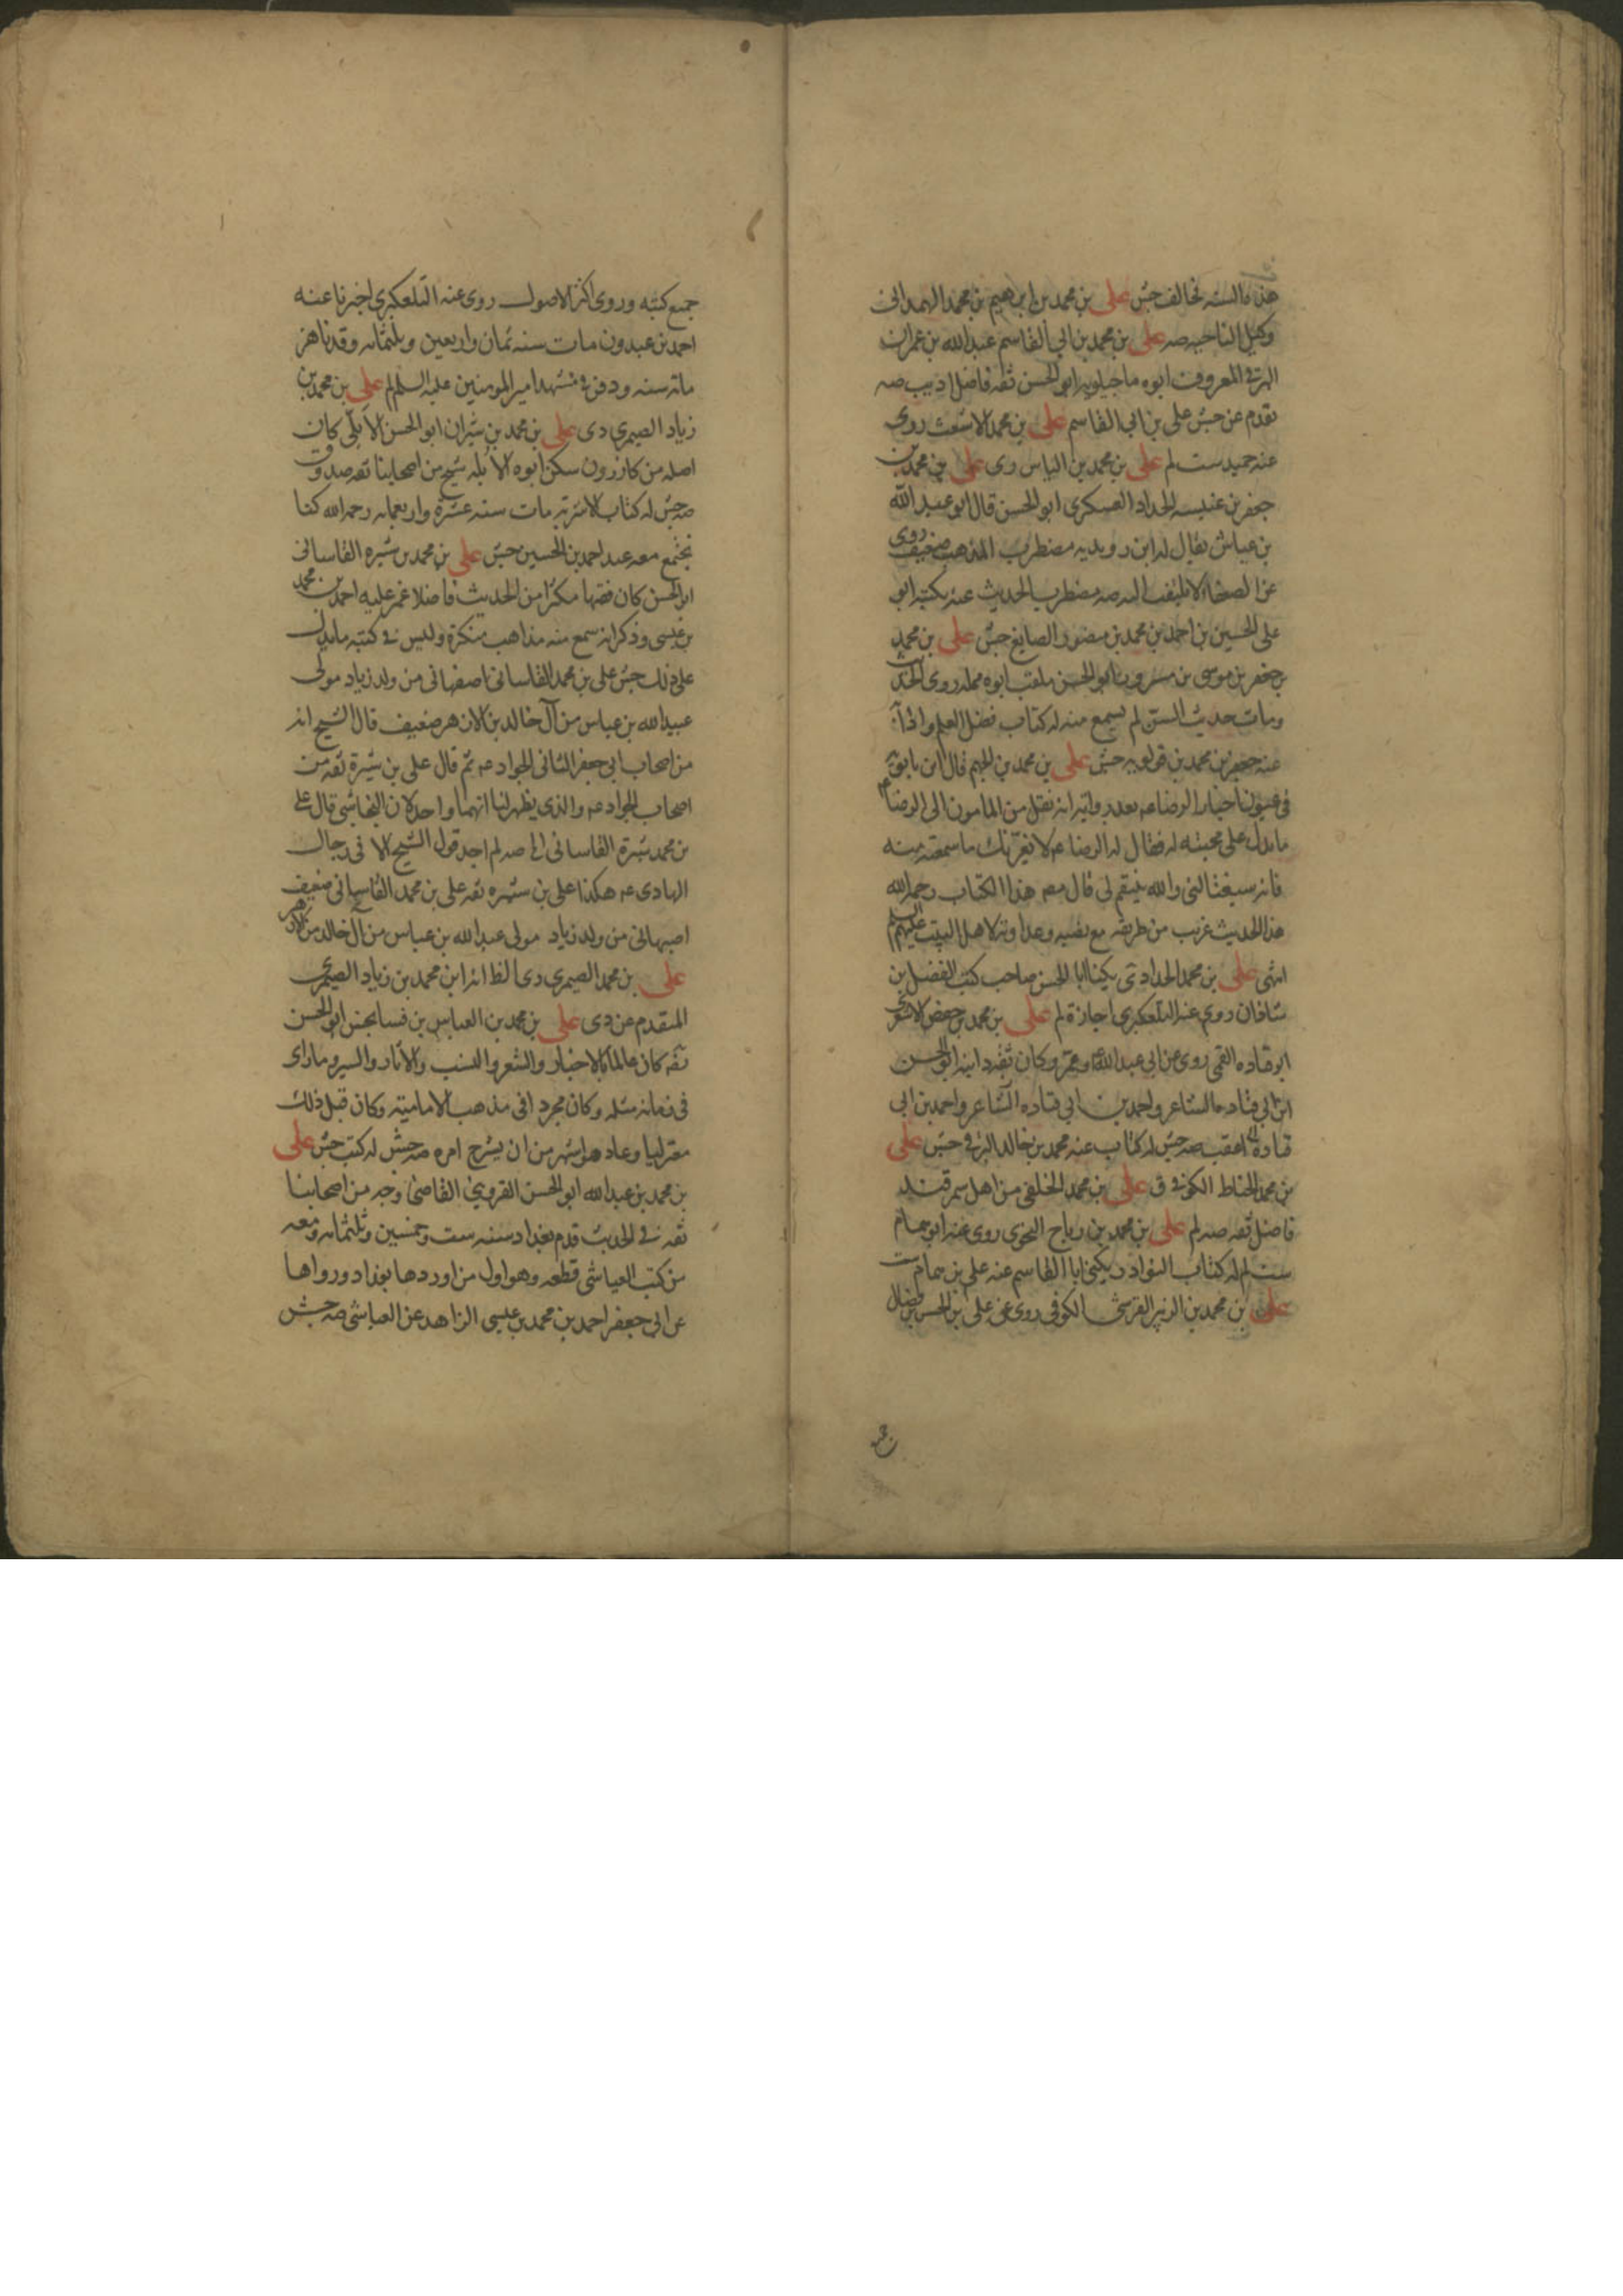 هذه السنه تخالف جش علي بن محمد بن ابرهيم بن محمد الهمداني
وكيل الناحيه صه علي بن محمد بن ابي القاسم عبدالله بن عمران
البرقي المعروف ابوه ماجيلويه ابو الحسن ثقه فاضل اديب صه
تقدم عن جش علي بن ابي القاسم علي بن محمد الاشعث روى
عنه حميد ست لم علي بن محمد بن الياس دى علي بن محمد بن
جعفر بن عنبسه الحداد العسكرى ابو الحسن قال ابو عبد الله
بن عياش يقال له ابن رويديه مضطرب المذهب ضعيف روى
عن الضعفاء لا يلتفت اليه صه مضطرب الحديث عنه بكتبه ابو
على الحسين بن احمد بن محمد بن منصور الصايغ جش علي بن محمد
بن جعفر بن موسى بن مسرور ابو الحسن ملقب ابوه مملة روى الحديث
ومات حديث السن لم يسمع منه له كتاب فضل العلم وادابه
عنه جعفر بن محمد بن قولويه جش علي بن محمد بن الجهم قال ابن بابويه
في عيون اخبار الرضا عه بعد روايته انه نقل من المامون الى الرضا عه
ما يدل على محبته له فقال له الرضا عه لا تغرنك ما سمعته منه
فانه سيغتالني والله ينتقم لي قال مصه هذا الكتاب رحمه الله
هذا الحديث غريب من طريقه مع نصبه وعداوته لاهل البيت عليهم السلم
انتهى علي بن محمد الحدادى يكنى ابا الحسن صاحب كتب الفضل بن
شاذان روى عنه التلعكبرى اجازة لم علي بن محمد بن حفص الاشعرى
ابو قتاده القمى روى عن ابي عبد الله عه وعمر وكان ثقه وابنه ابو الحسن
ابن ابي قتاده الشاعر واحمد بن ابي قتاده الشاعر واحمد بن ابي
قتاده اعقب صه جش له كتاب عنه محمد بن خالد البرقى جش علي
بن محمد الحناط الكوفى ق علي بن محمد الخلفى من اهل سمرقند
فاضل ثقه صه لم علي بن محمد بن رباح النحوى روى عنه ابو همام
ست لم له كتاب النوادر يكنى ابا القاسم عنه علي بن همام ست
علي بن محمد بن الزبير القرشى الكوفى روى عن علي بن الحسن بن فضال
جميع
جميع كتبه وروى اكثر الاصول روى عنه التلعكبرى اخبرنا عنه
احمد بن عبدون مات سنه ثمان واربعين وثلثمائه وقد ناهز
مائه سنه ودفن فى مشهد امير المومنين عليه السلم لم علي بن محمد بن
زياد الصيمرى دى علي بن محمد بن شيران ابو الحسن الابلى كان
اصله من كازرون سكن ابوه الابله شيخ من اصحابنا ثقه صدوق
صه جش له كتاب الاشربه مات سنه عشرة واربعمائه رحمه الله كنا
نجتمع معه عند احمد بن الحسين جش علي بن محمد بن شيره القاسانى
ابو الحسن كان فقيها مكثرا من الحديث فاضلا غمز عليه احمد بن محمد
بن عيسى وذكر انه سمع منه مذاهب منكرة وليس فى كتبه ما يدل
على ذلك جش على بن محمد القاسانى اصفهانى من ولد زياد مولى
عبيد الله بن عباس من آل خالد بن الازهر ضعيف قال الشيخ انه
من اصحاب ابي جعفر الثانى الجواد عه ثم قال على بن شيرة ثقه من
اصحاب الجواد عه والذى يظهر لنا انهما واحد لان النجاشى قال على
بن محمد شيرة القاسانى الخ صه لم اجد قول الشيخ الا فى رجال
الهادى عه هكذا على بن شيره ثقه على بن محمد القاسانى ضعيف
اصبهانى من ولد زياد مولى عبد الله بن عباس من آل خالد بن الازهر
علي بن محمد الصيمرى دى الظ انه ابن محمد بن زياد الصيمرى
المتقدم عن دى علي بن محمد بن العباس بن فسانجس ابو الحسن
ثقه كان عالما بالاخبار والشعر والنسب والاثار والسير وما راى
فى زمانه مثله وكان مجردا فى مذهب الاماميه وكان قبل ذلك
معتزليا وعاد هو اشهر من ان يشرح امره صه جش له كتب جش علي
بن محمد بن عبد الله ابو الحسن القزوينى القاضى وجه من اصحابنا
ثقه فى الحديث قدم بغداد سنه ست وخمسين وثلثمائه ومعه
من كتب العياشى قطعه وهو اول من اوردها بغداد ورواها
عن ابي جعفر احمد بن محمد بن عيسى الزاهد عن العياشى صه جش